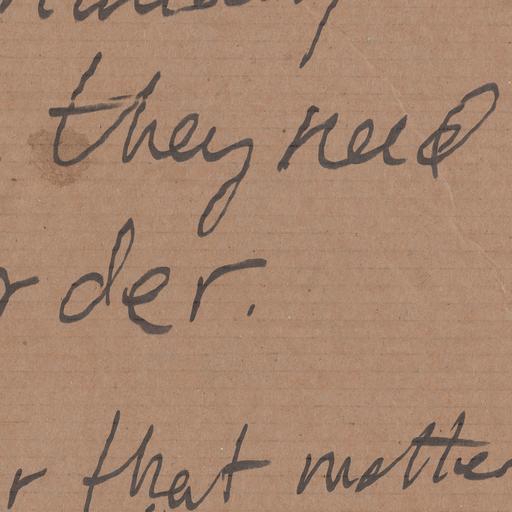 they need
rder.
r that matter